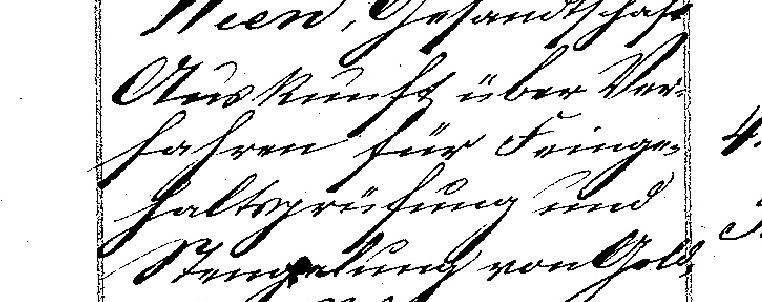 Wien, Gesandtschaft
Auskunft über Ver-
fahren für Feinge-
haltsprüfung und
Stempelung von Gold,
4.